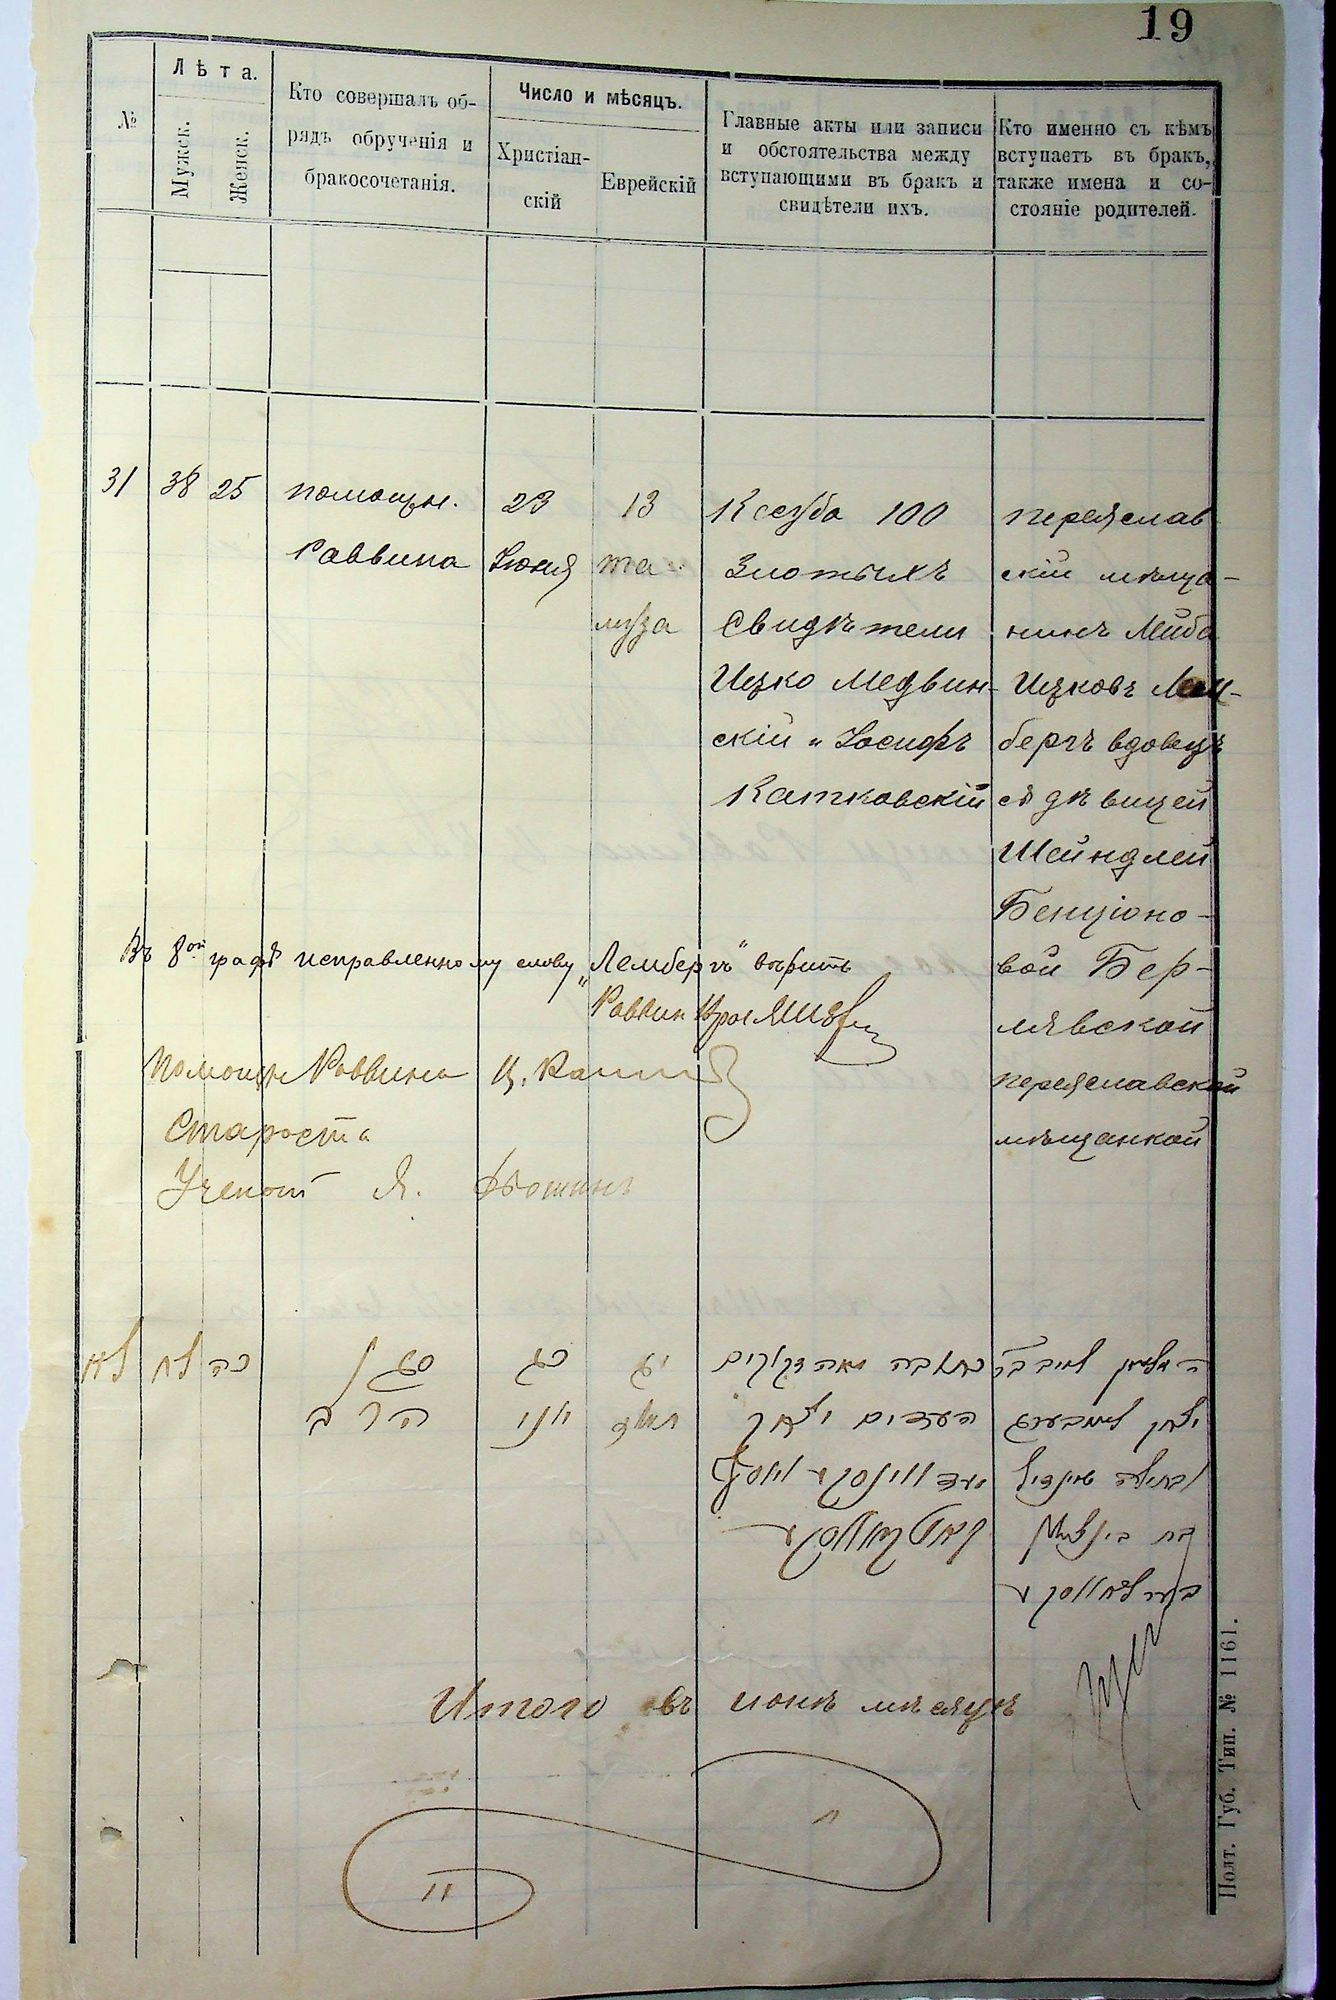 19
№
Лѣта.
Мужск.
Женск.
Кто совершалъ об-
рядъ обрученія и
бракосочетанія.
Число и мѣсяцъ.
Христіан-
скій
Еврейскій
Главные акты или записи
и обстоятельства между
вступающими въ бракъ и
свидѣтели ихъ.
Кто именно съ кѣмъ
вступаетъ въ бракъ,
также имена и со-
стояніе родителей.
31
38
25
помощн.
Раввина
23
Іюня
13
та
муза
Ксесуба 100
Злотыхъ
Свидѣтели
Ицко Медвин-
скій и Іосифъ
Капковскій
переяслав
скій мѣща-
нинъ Лейба
Ицковъ Лем-
бергъ вдовецъ
съ дѣвицей
Шейндлей
Бенціоно-
вой Бер-
лявской
переяславской
мѣщанкой
Въ 8ой графѣ исправленному слову „Лембергъ" вѣрить
Раввин
Помощн Раввина Ц.
Староста
Ученой Я.
לא
לח
כה
סגן
הרב
כג
יוני
יג
תמוז
כתובה מאה זקוקים
העדים יצחק
מעדווינסקי ויוסף
ה אלמן לייב בר
יצחק לעמבערג
ובתולה שיינדיל
בת בן ציון
בערליאווסקי
Итого въ іюнѣ мѣсяцѣ
11
Полт. Губ. Тип. № 1161.